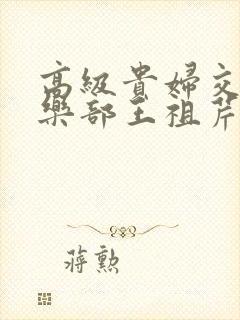 高級貴婦交
樂部王祖芹
蔣勲